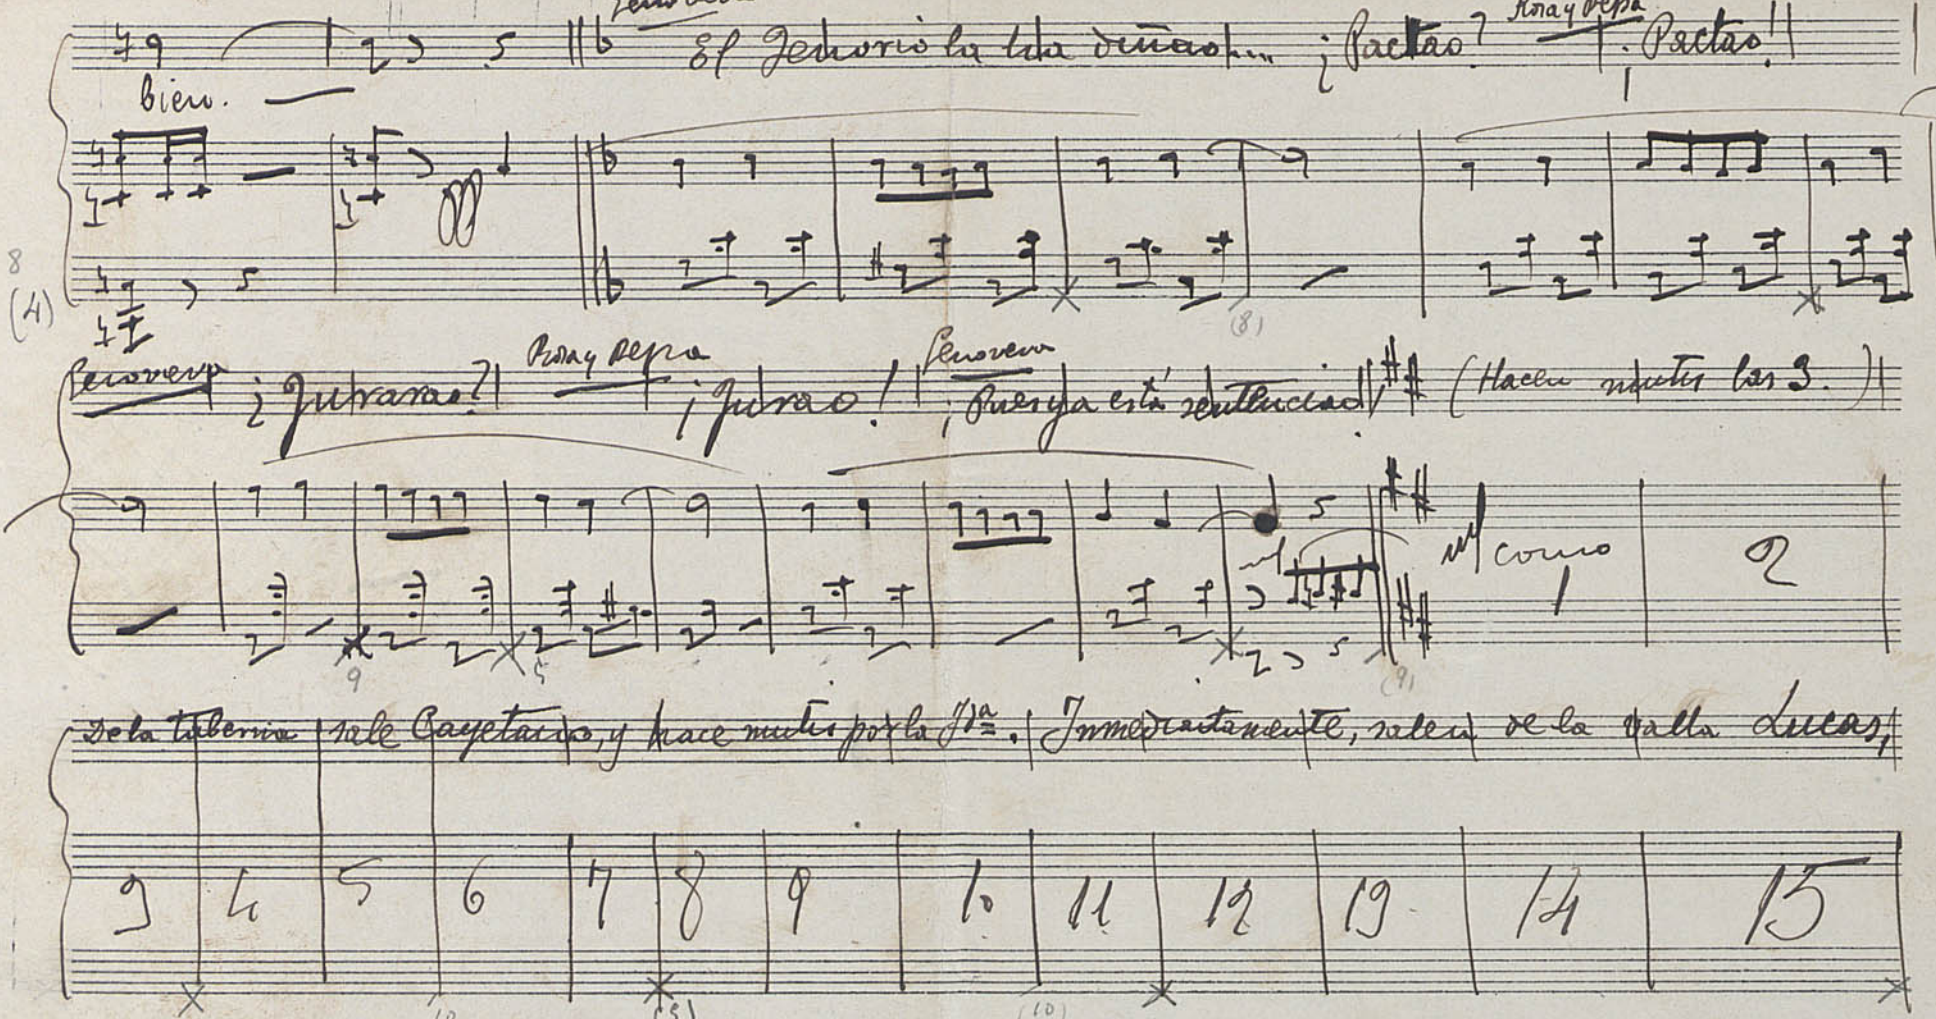 Genoveva Rosa y Pepa
El Tenorio la ha diñao... ¿Pactao? ¡Pactao!
bien.
8
(4)
(8)
Genoveva ¿Jurarao? Rosa y Pepa ¡Jurao! Genoveva ¡Pues ya está sentenciao! (Hacen mutis las 3.)
como
1 2
9 5 (9)
De la taberna sale Cayetano, y hace mutis por la Ida. Inmediatamente, salen de la valla Lucas,
3 4 5 6 7 8 9 10 11 12 13 14 15
(10)